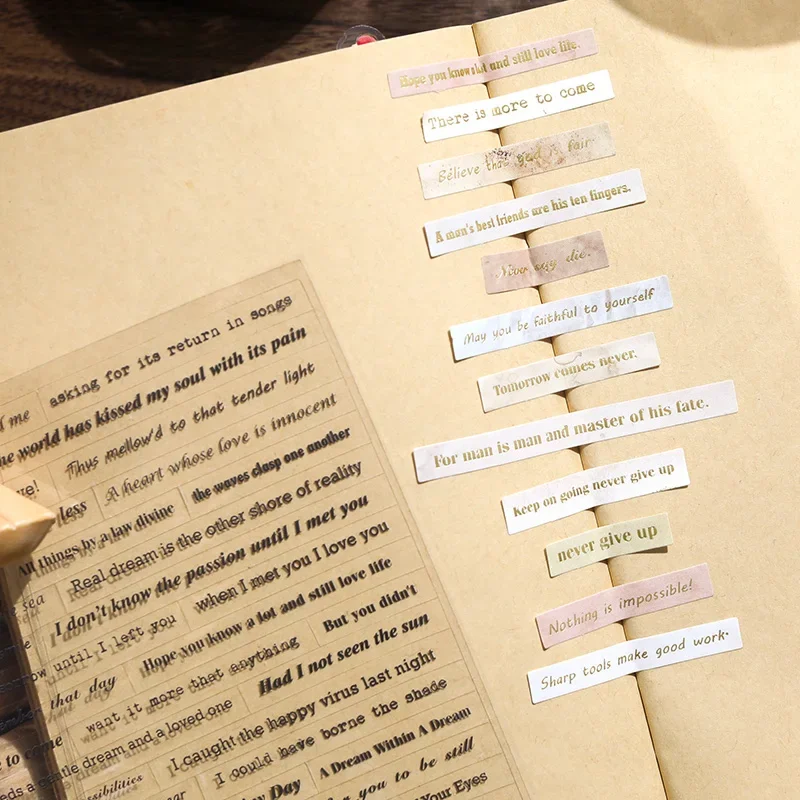 Hope you know a lot and still love life.
There is more to come
Believe that god is fair
A man's best friends are his ten fingers.
Never say die.
May you be faithful to yourself
Tomorrow comes never.
For man is man and master of his fate.
Keep on going never give up
never give up
Nothing is impossible!
Sharp tools make good work.
asking for its return in songs
me world has kissed my soul with its pain
Thus mellow'd to that tender light
less A heart whose love is innocent
All things by a law divine the waves clasp one another
Real dream is the other shore of reality
sea I don't know the passion until I met you
until I left you when I met you I love you
that day Hope you know a lot and still love life
to come want it more that anything But you didn't
a gentle dream and a loved one Had I not seen the sun
I caught the happy virus last night
I could have borne the shade
Day A Dream Within A Dream
you to be still
Your Eyes